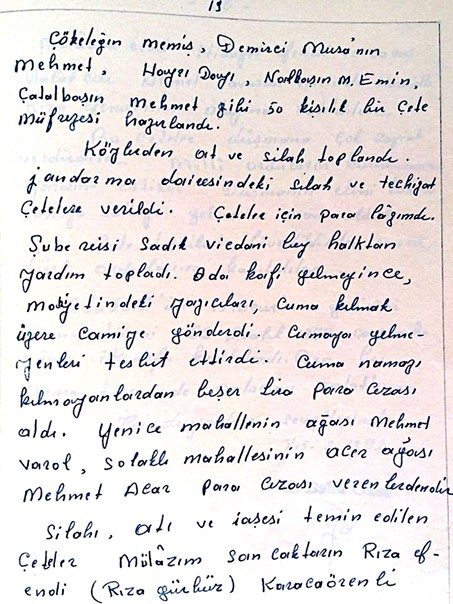 19
Çökeleğin memiş, Demirci Musa'nın
Mehmet, Hayri Dayı, Nalbaşın M. Emin,
Çatalbaşın Mehmet gibi 50 kişilik bir Çete
müfrezesi hazırlandı.
Köylüden at ve silah toplandı.
Jandarma dairesindeki silah ve techizat
Çetelere verildi. Çeteler için para lâzımdı.
Şube reisi Sadık vicdani bey halktan
yardım topladı. Oda kafi gelmeyince,
maiyetindeki yazıcıları, Cuma kılmak
üzere Camiye gönderdi. Cumaya gelme-
yenleri tesbit ettirdi. Cuma namazı
kılmayanlardan beşer lira para cezası
aldı. Yenice mahallenin ağası Mehmet
varol, Solaklı mahallesinin acar ağası
Mehmet Acar para cezası verenlerdendir
Silahı, atı ve iaşesi temin edilen
Çeteler Mülâzım Sancaktarın Rıza ef-
endi (Rıza gürbüz) Karacaörenli